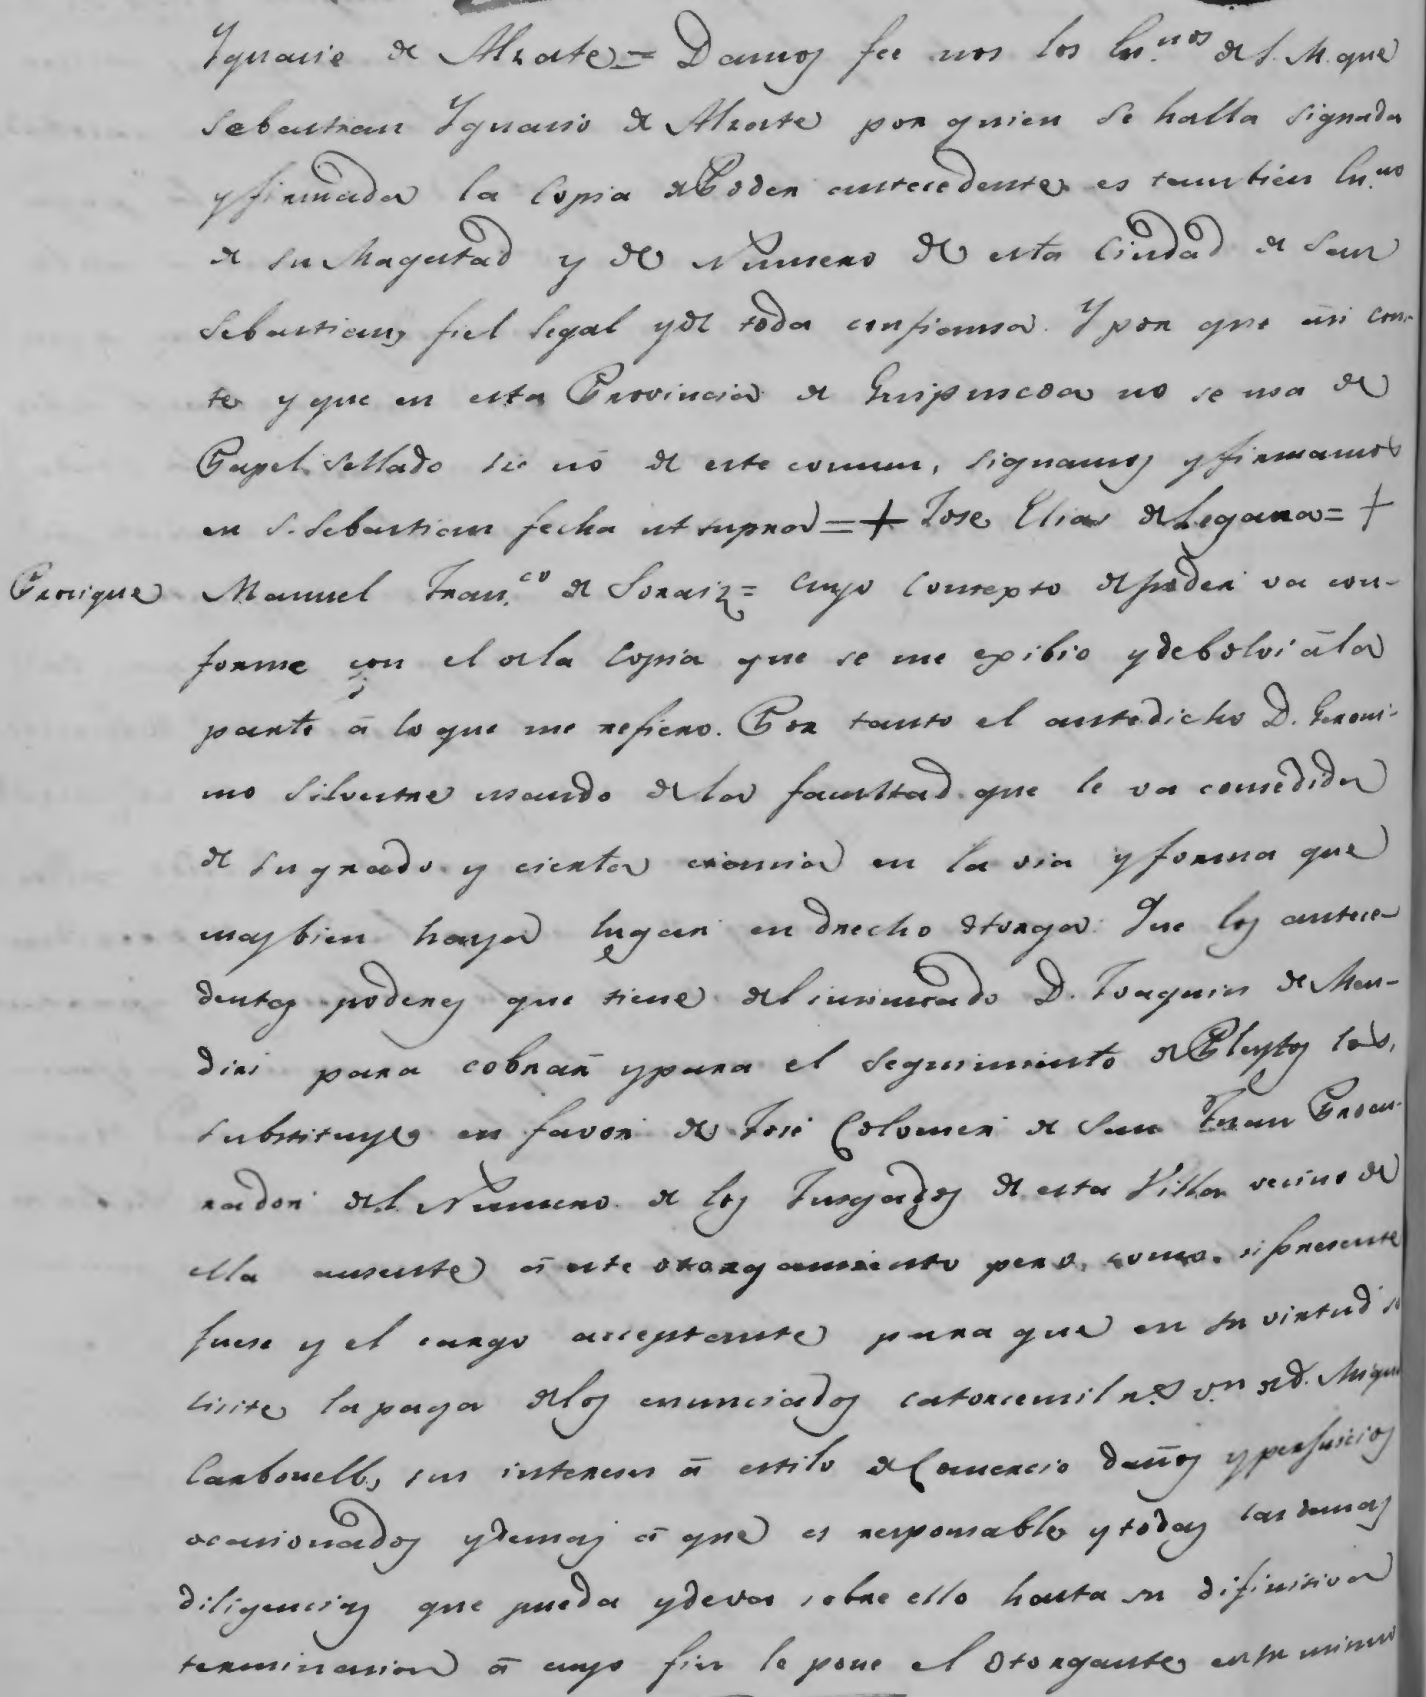 Ygnacio de Alzate = Damos fee nos los En.nos de S. M. que
Sebastian Ygnacio de Alzate por quien se halla signada
y firmada la Copia de Poder antecedente es tambien En.no
de su Magestad y de Numero de esta Ciudad de San
Sebastian, fiel legal y de toda confianza. Y por que asi cons-
te y que en esta Provincia de Guipuzcoa no se usa de
Papel Sellado si nó de este comun, signamos y firmamos
en S. Sebastian fecha ut supra = + Jose Elias de Legarra = +
Prosigue Manuel Fran.co de Soraiz = cuyo Contexto de poder va con-
forme con el de la Copia que se me exibio y debolvi á la
parte á lo que me refiero. Por tanto el antedicho D. Geroni-
mo Silvestre usando de la facultad que le va concedida
de su grado y cierta ciencia en la via y forma que
mas bien haya lugar en drecho otorga: Que los antece-
dentes poderes que tiene del insinuado D. Joaquin de Men-
diri para cobrar y para el seguimiento de Pleytos los,
substituye en favor de José Colomer de San Juan Procu-
rador del Numero de los Jusgados de esta Villa vecino de
ella ausente á este otorgamiento pero como si presente
fuese y el cargo acceptante para que en su virtud so
licite la paga de los enunciados catorcemil r.s v.n de d. Migue
Carbonell, sus intereses á estilo de Comercio daños y perjuicios
ocasionados y demas á que es responsable y todas las demas
diligencias que pueda y deva sobre ello hasta su difinitiva
terminacion á cuyo fin le pone el Otorgante en su mismo